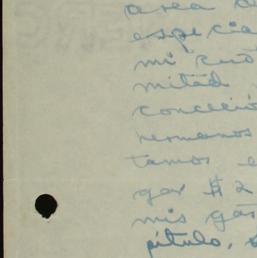 area de
especia
mi cuo
mitad
conceció
hermanos
tamos e
gar $2
mis gas
pítulo,